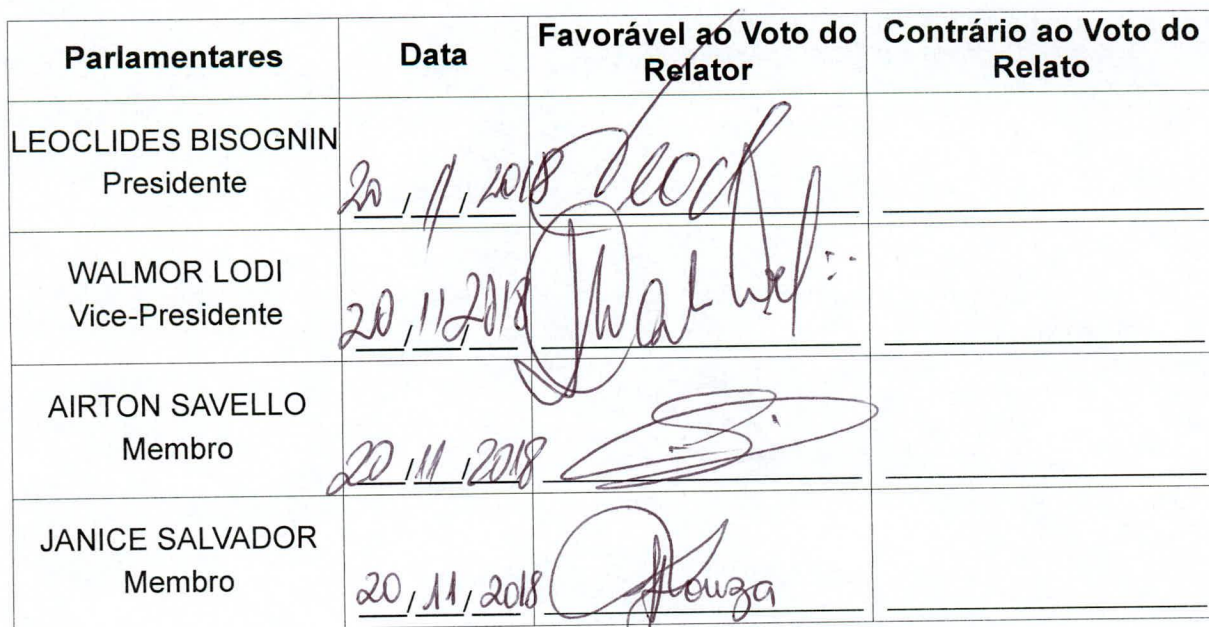 Parlamentares Data Favorável ao Voto do Relator Contrário ao Voto do Relato
LEOCLIDES BISOGNIN
Presidente
20/11/2018
WALMOR LODI
Vice-Presidente
20/11/2018
AIRTON SAVELLO
Membro
20/11/2018
JANICE SALVADOR
Membro
20/11/2018 Souza